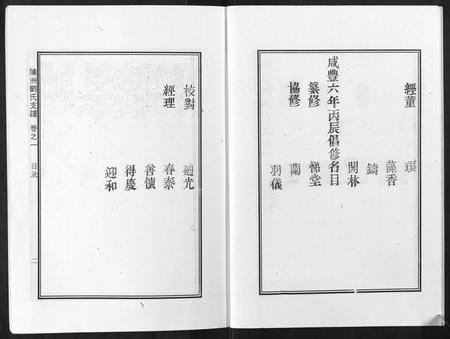 經董 瑱
藻香
鑄
開林
咸豐六年丙辰倡修名目
纂修 悌堂
協修 蘭
羽儀
校對 廸光
經理 春泰
善懷
得慶
迎和
陳洲劉氏支譜 卷之一 目录 二